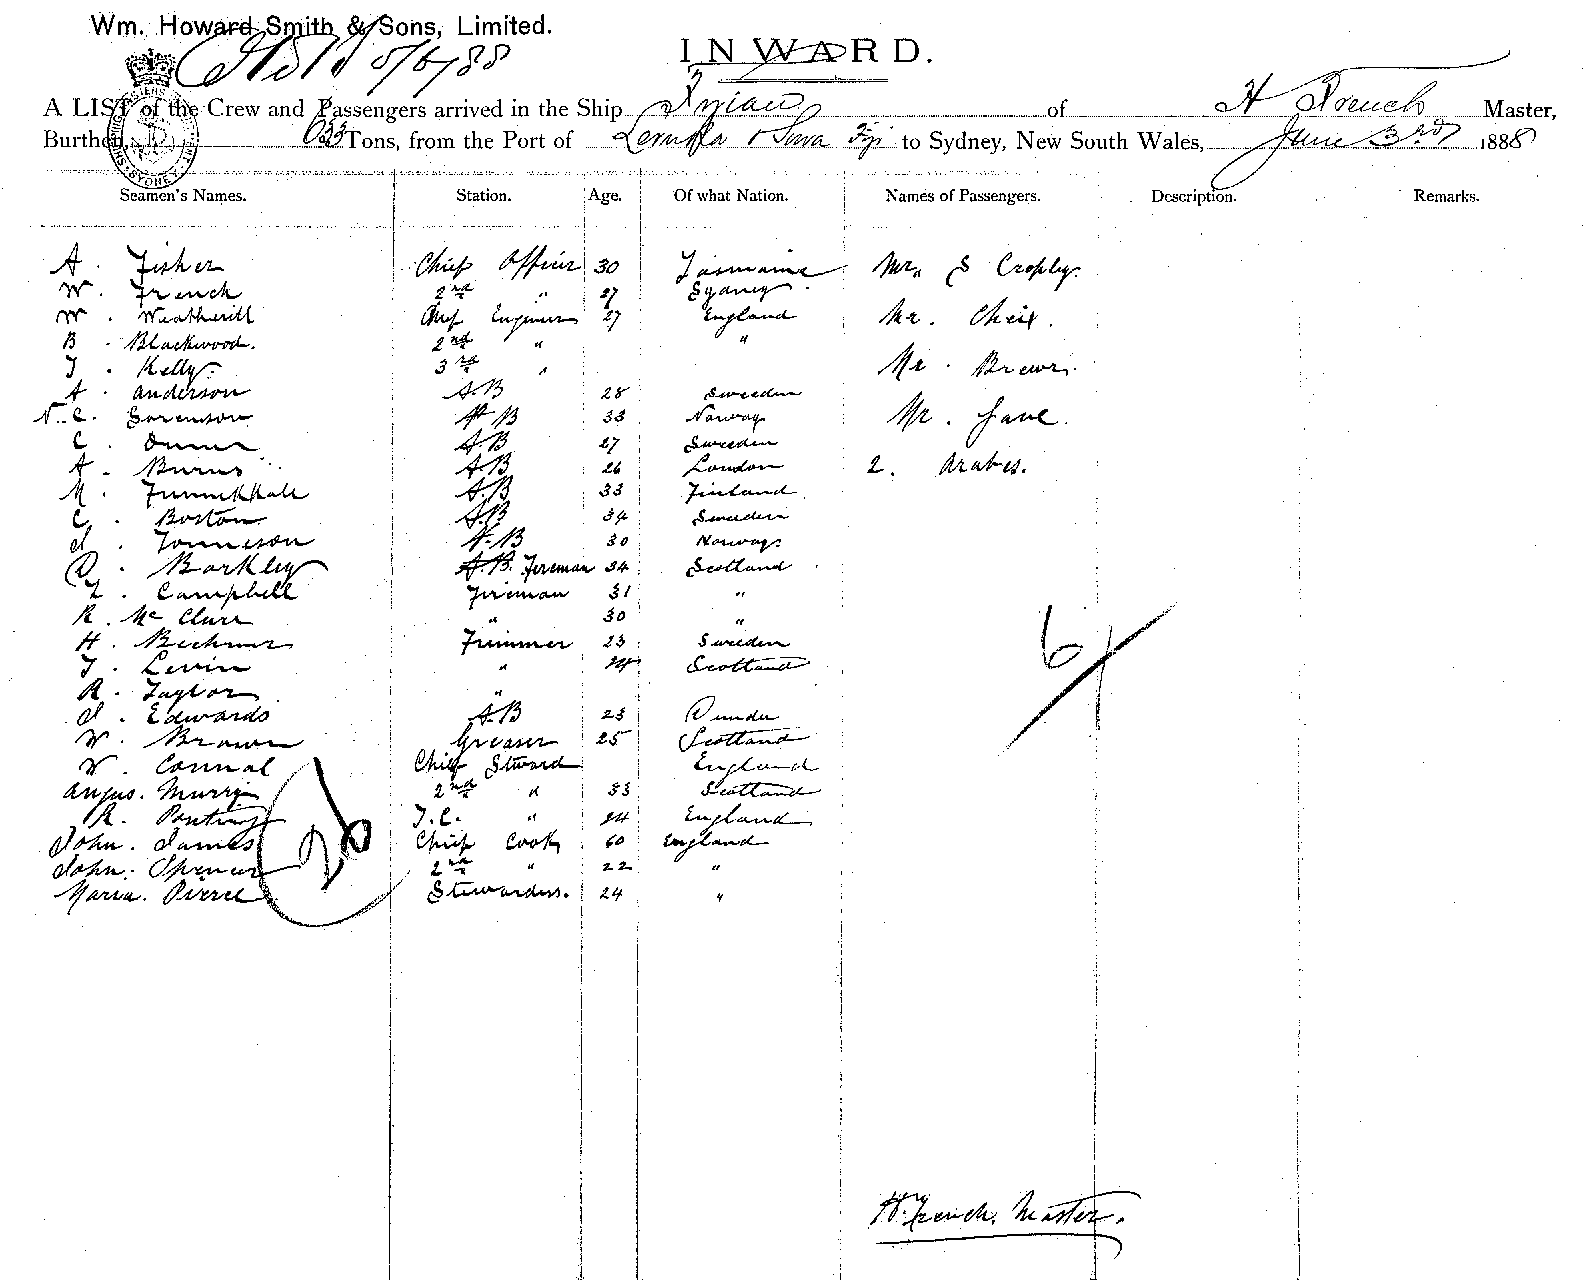 Wm. Howard Smith & Sons, Limited.
5/6/88
INWARD.
A LIST of the Crew and Passengers arrived in the Ship Tyrian of H French Master,
Burthen, Tons, from the Port of Levuka & Suva Fiji to Sydney, New South Wales, June 3rd 1888
Seamen's Names. Station. Age. Of what Nation. Names of Passengers. Description. Remarks.
A. Fisher Chief Officer 30 Tasmania Mr. S Cropley.
W. French 2nd " 27 Sydney
W. Weatherill Chief Engineer 27 England Mr.
B. Blackwood. 2nd " "
J. Kelly. 3rd " Mr.
A. Anderson A.B 28 Sweden
N.C. Sorenson A B 33 Norway Mr.
C. A.B 27 Sweden
A. Burns A.B 26 London 2. Arabes.
M. A.B 33 Finland
C. Boston A.B 34 Sweden
J. Tonneson A.B 30 Norway
D. Barkley A.B. Fireman 34 Scotland
Campbell Fireman 31 "
R. Mc Clure " 30 "
H. Trimmer 23 Sweden
J. " 24 Scotland
R. Taylor "
J. Edwards A.B 23 Dundee
W. Brown Greaser 25 Scotland
W. Connal Chief Steward England
Angus. Murry 2nd " 33 Scotland
R. Ponting F.C. " 24 England
John. James Chief Cook 60 England
John. Spencer 2nd " 22 "
Maria. Pierce Stewardess. 24 "
26
6
H. French. Master.